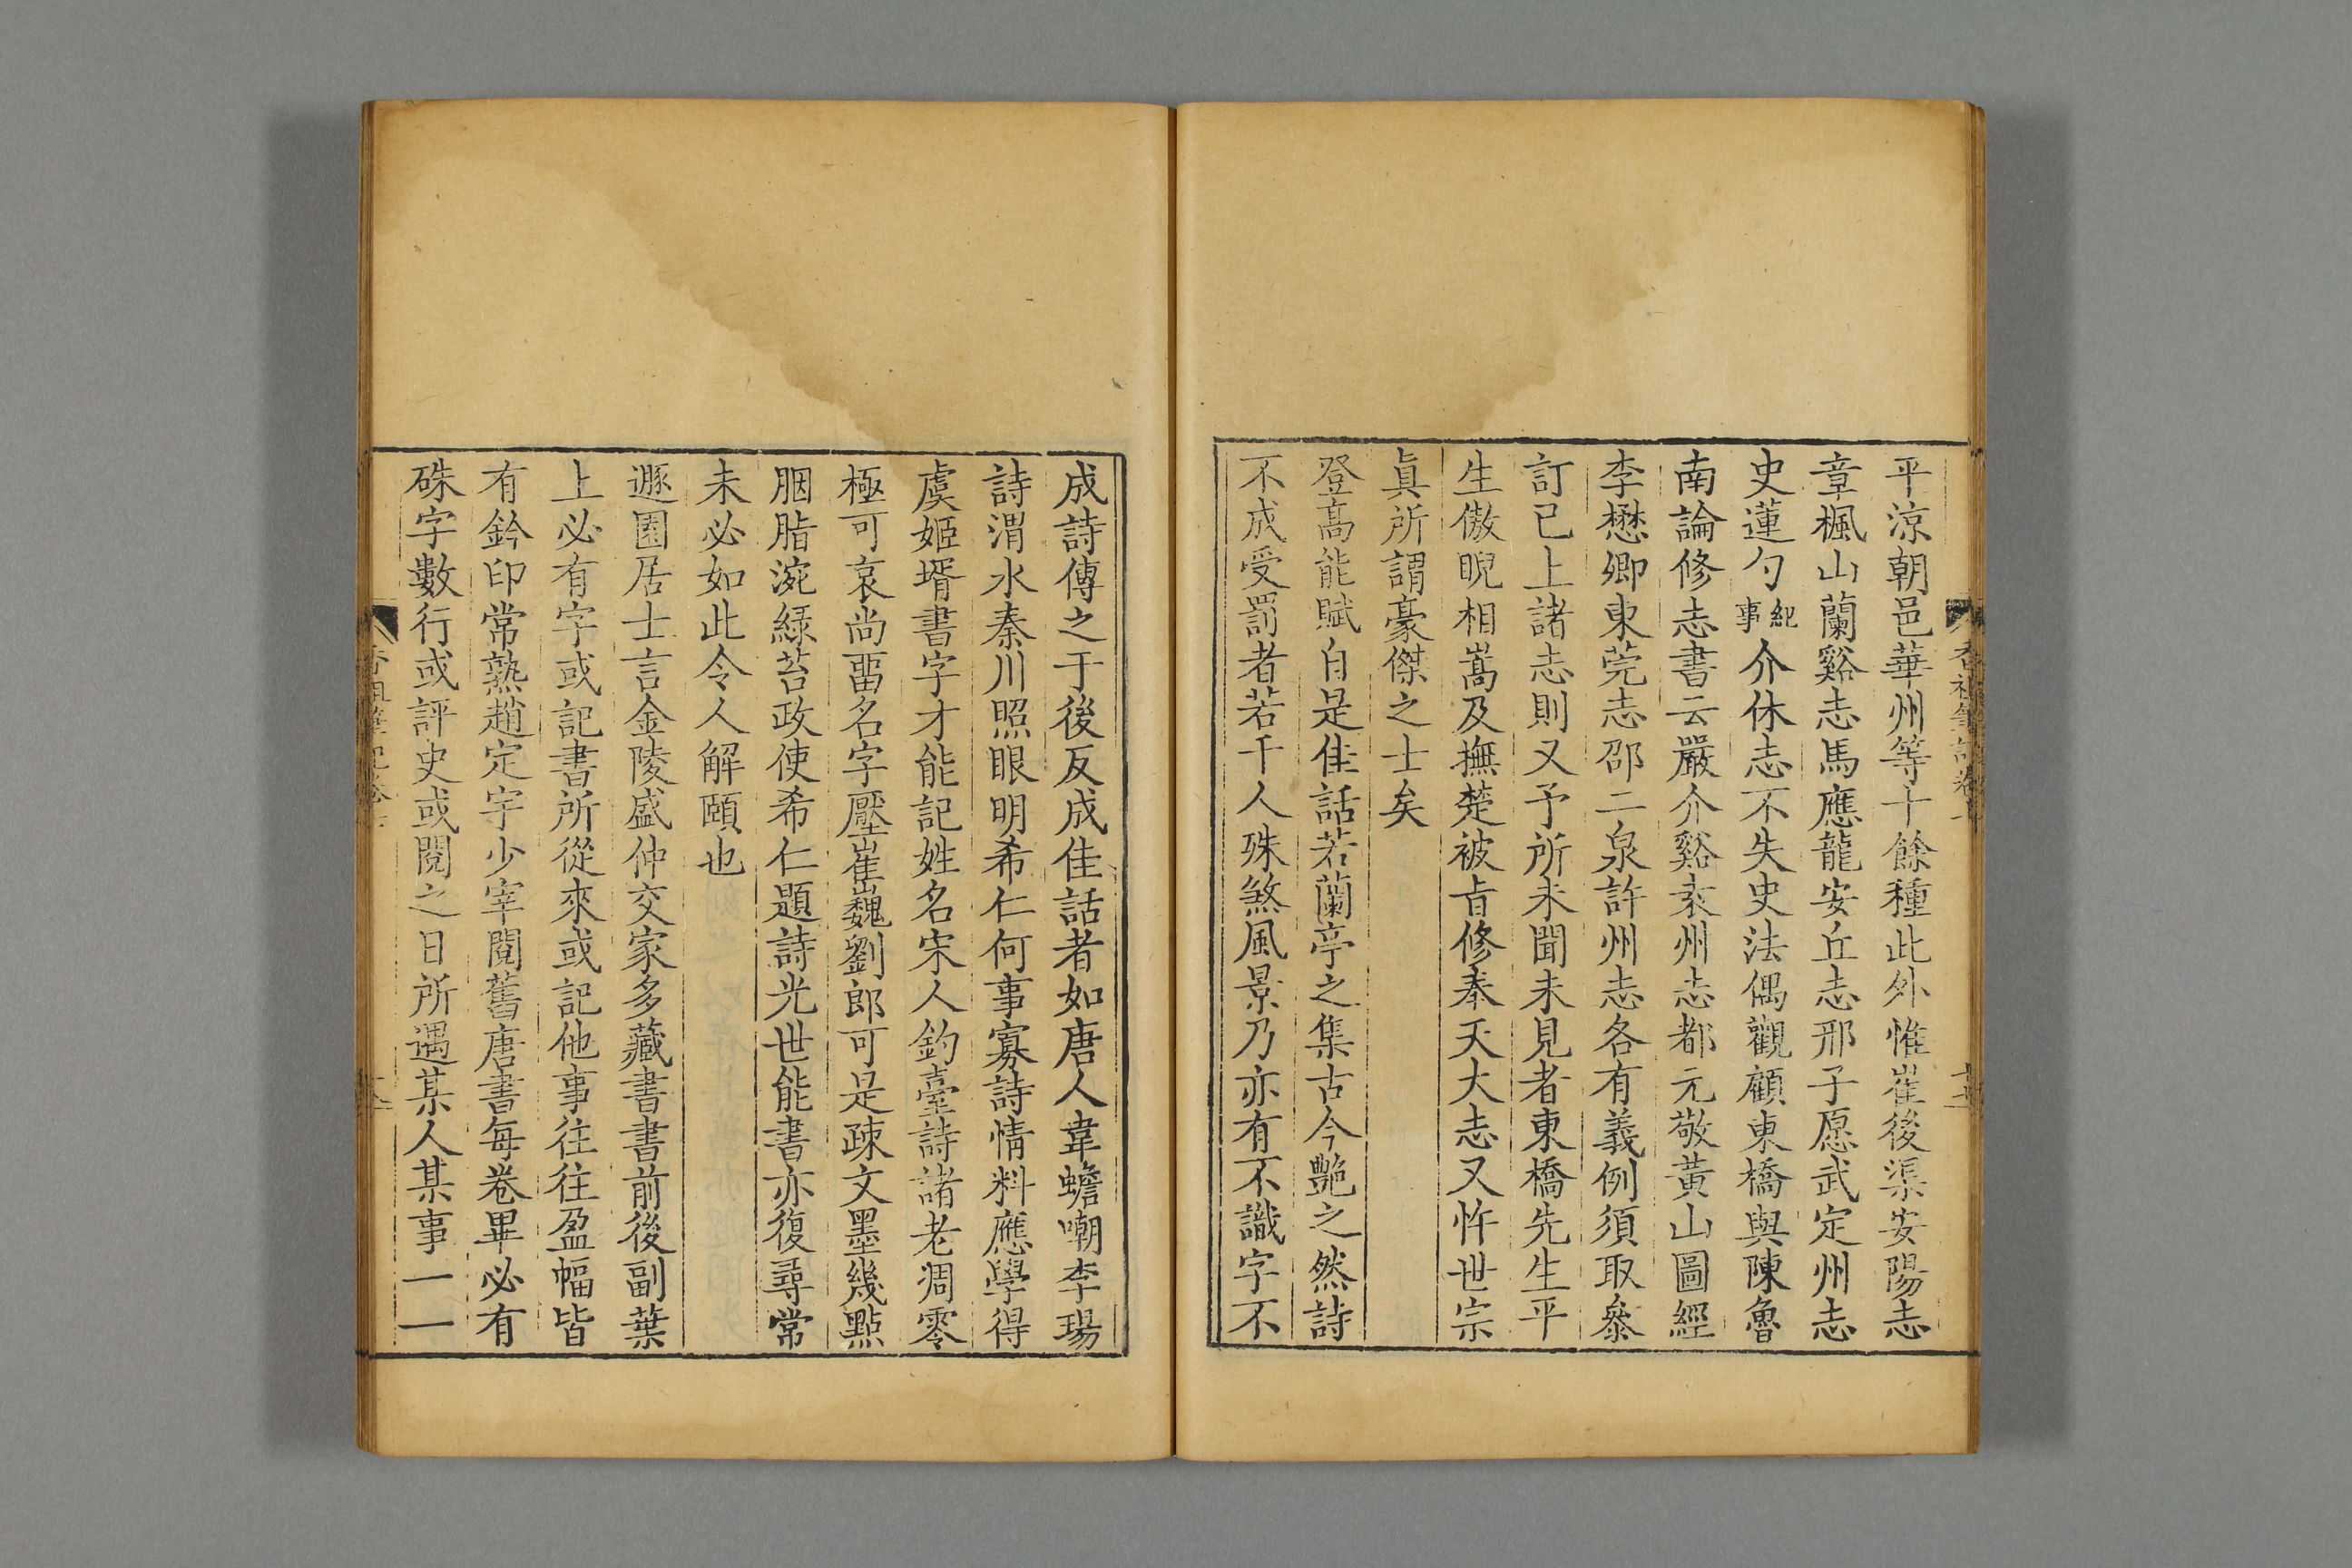 平涼朝邑華州等十餘種此外惟崔後渠安陽志
章楓山蘭谿志馬應龍安丘志邢子愿武定州志
史蓮勺紀事介休志不失史法偶觀顧東橋與陳魯
南論修志書云嚴介谿袁州志都元敬黃山圖經
李懋卿東莞志邵二泉許州志各有義例須取叅
訂已上諸志則又予所未聞未見者東橋先生平
生傲睨相嵩及撫楚被㫖修奉天大志又忤世宗
眞所謂豪傑之士矣
登高能賦自是佳話若蘭亭之集古今艷之然詩
不成受罰者若干人殊煞風景乃亦有不識字不
成詩傳之于後反成佳話者如唐人韋蟾嘲李瑒
詩渭水秦川照眼明希仁何事寡詩情料應學得
虞姬壻書字才能記姓名宋人釣臺詩諸老凋零
極可哀尚畱名字壓崔巍劉郎可是疎文墨幾點
胭脂涴綠苔政使希仁題詩光世能書亦復尋常
未必如此令人解頤也
遯園居士言金陵盛仲交家多藏書書前後副葉
上必有字或記書所從來或記他事往往盈幅皆
有鈐印常熟趙定宇少宰閱舊唐書每卷畢必有
硃字數行或評史或閱之日所遇某人某事一一